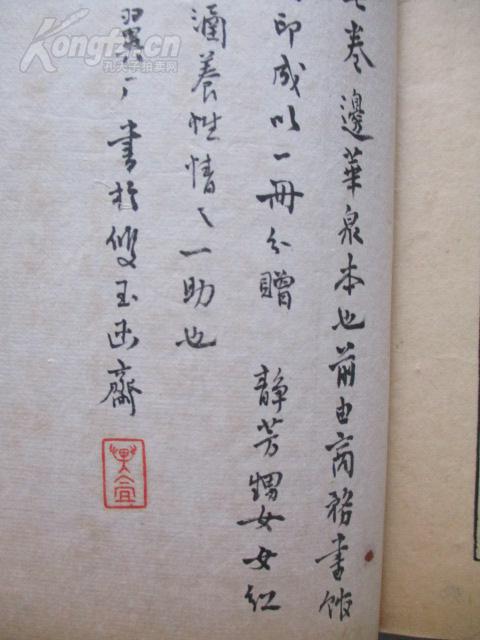 卷邊華泉本也前由商務書館
印成以一冊分贈 靜芳甥女女紅
涵養性情之一助也
翼厂書於雙玉函齋
Kongfz.cn
孔夫子拍卖网